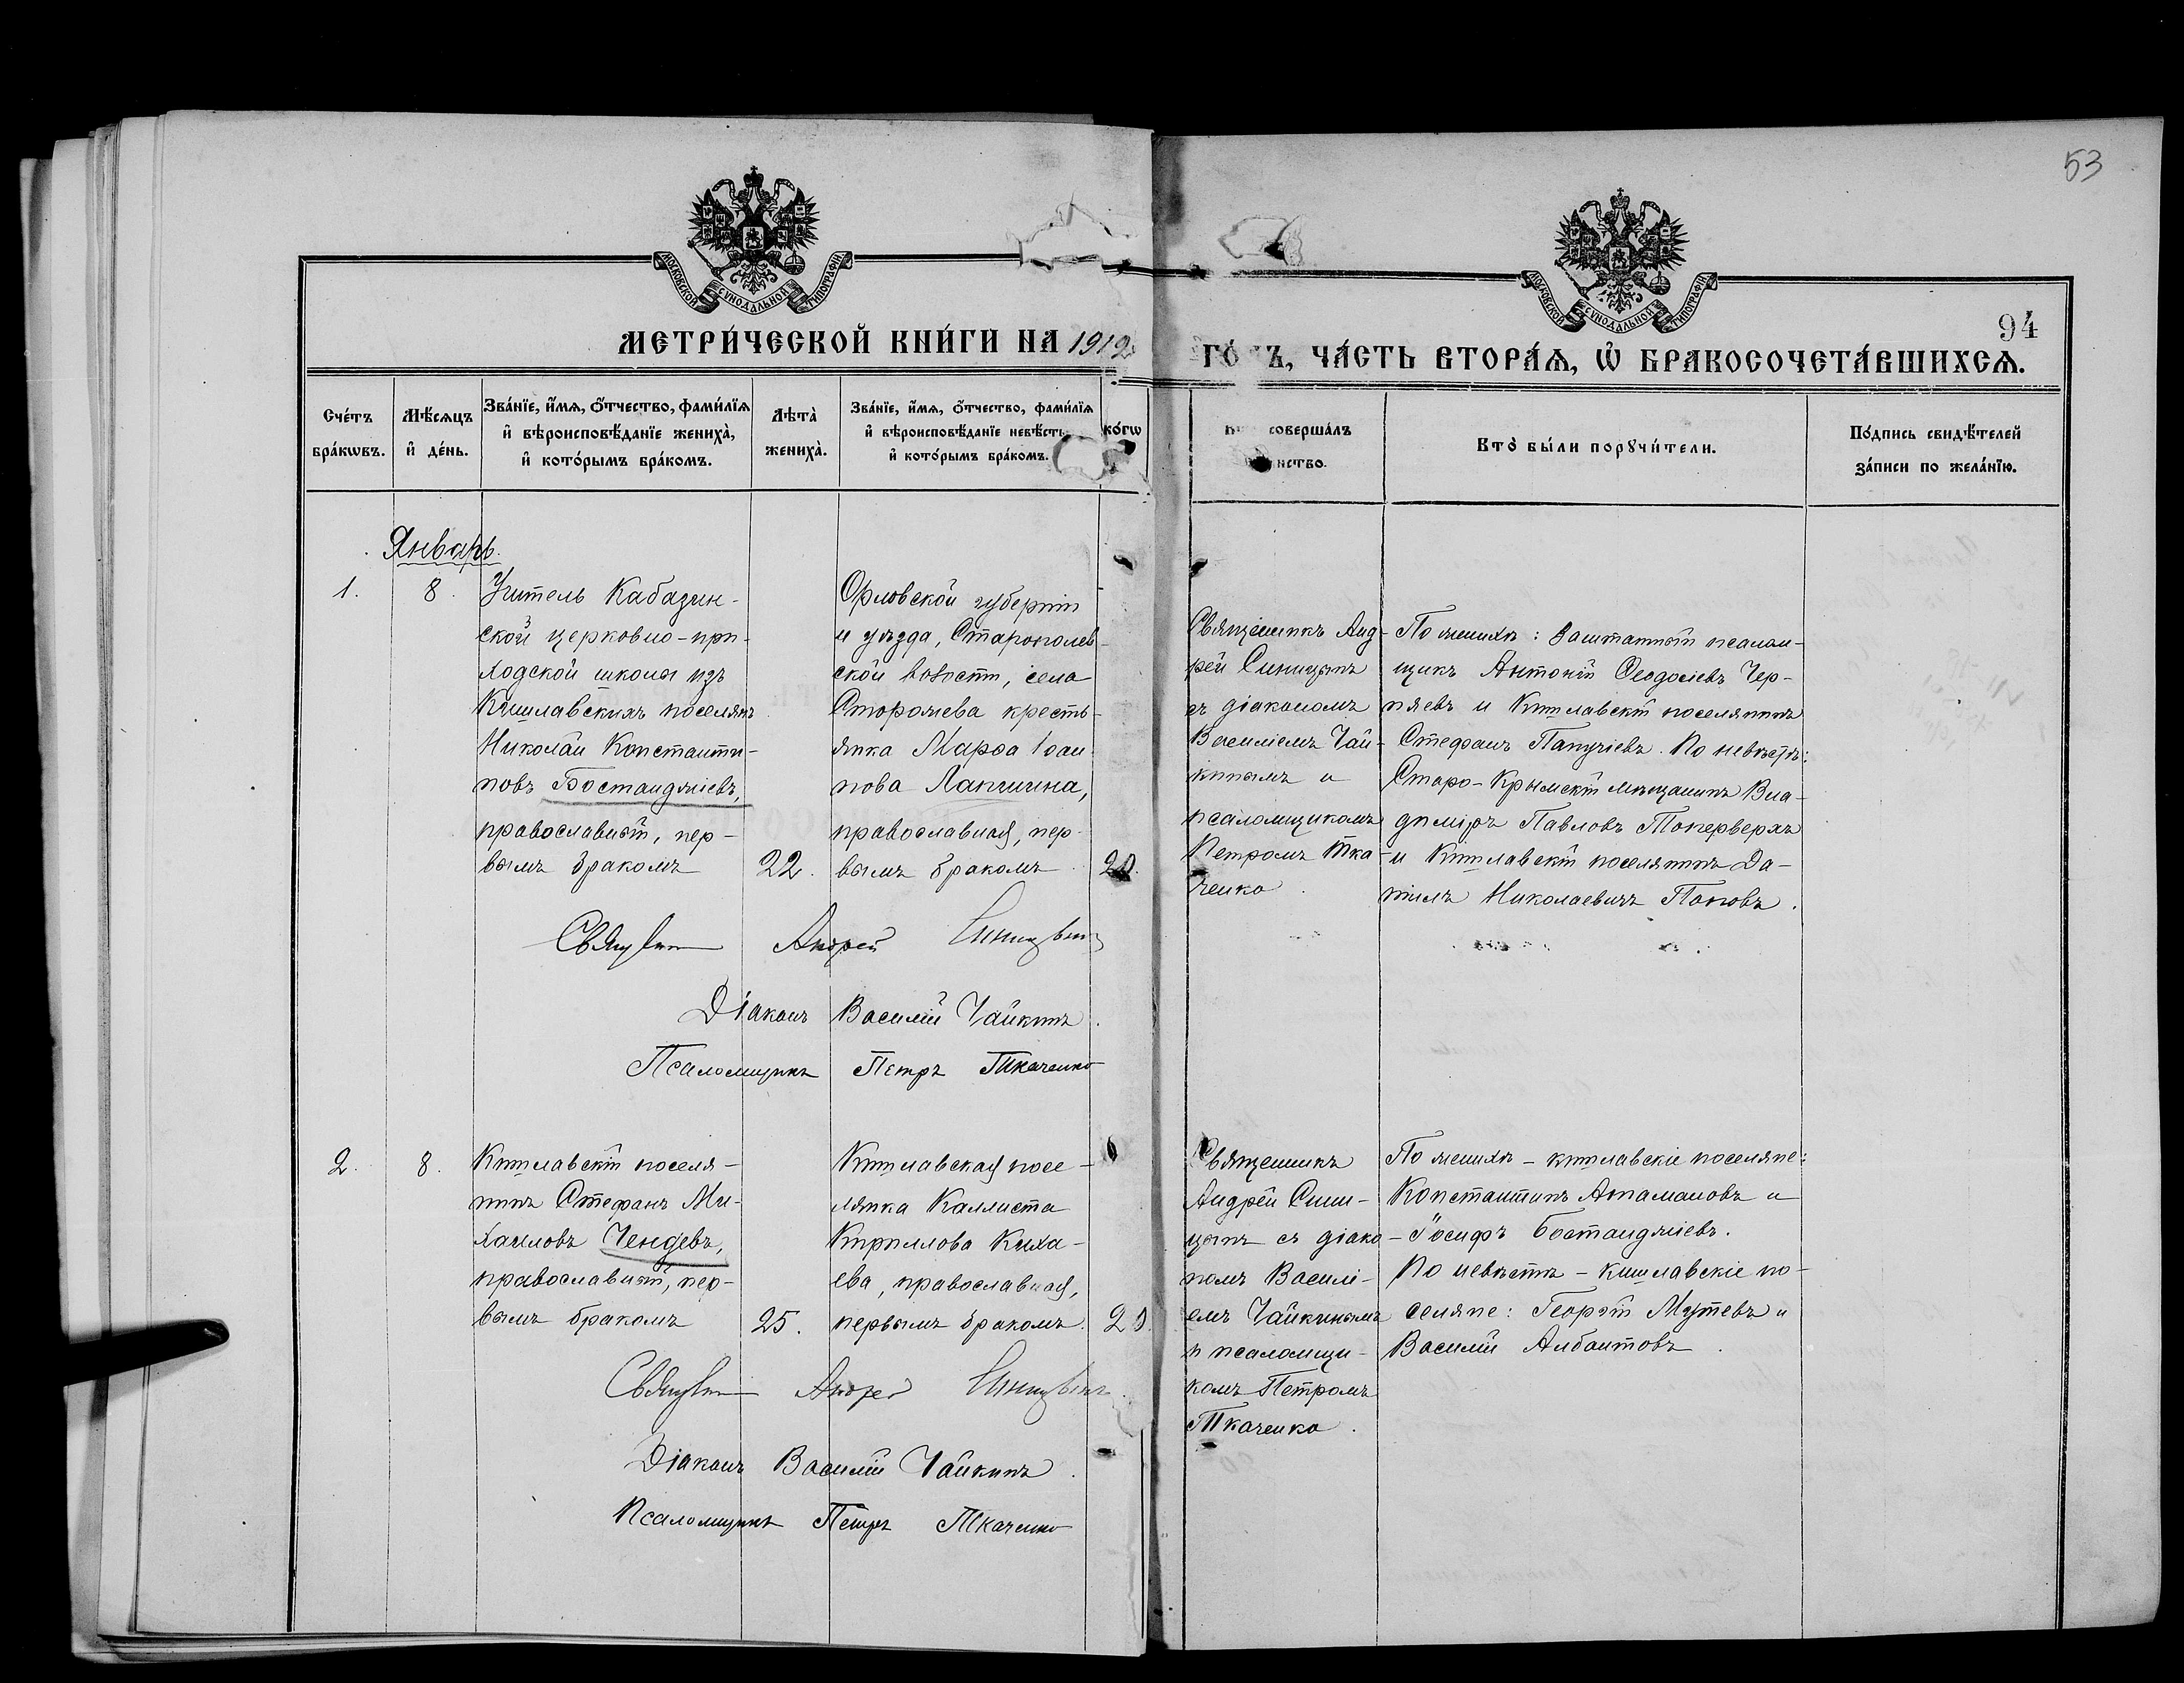 53
МОСКОВСКОЙ СѴНОДАЛЬНОЙ ТИПОГРАФІИ
МОСКОВСКОЙ СѴНОДАЛЬНОЙ ТИПОГРАФІИ
94
МЕТРИ́ЧЕСКОЙ КНИ́ГИ НА 1912
ГО́ ЪЪ, ЧА́СТЬ ВТОРА́Ѧ, Ѡ҆ БРАКОСОЧЕТА́ВШИХСѦ.
Сче́тъ
бра́кѡвъ.
Мѣ́сѧцъ
и҆ де́нь.
Зва́нїе, и҆́мѧ, ѻ҆́тчество, фамилїѧ
и҆ вѣроисповѣ́данїе жениха̀,
и҆ кото́рымъ бра́комъ.
Лѣта̀
жениха̀.
Зва́нїе, и҆́мѧ, ѻ҆́тчество, фами́лїѧ
и҆ вѣроисповѣ́данїе невѣ́сты
и҆ кото́рымъ бра́комъ.
ко́гѡ
соверша́лъ
нство.
Кто̀ бы́ли порꙋчи́тели.
По́дпись свидѣ́телей
за́писи по жела́нїю.
Январь.
1.
8.
Учитель Кабазин-
ской церковно-при-
ходской школы изъ
Кишлавскихъ поселянъ
Николай Константи-
новъ Бостанджіевъ,
православный, пер-
вымъ бракомъ
22.
Орловской губерніи
и уѣзда, Старополев-
ской волости, села
Сторожева кресть-
янка Марѳа Іоан-
нова Лапшина,
православная, пер-
вымъ бракомъ
20.
Священникъ Анд-
рей Синицынъ
съ діакономъ
Василіемъ Чай-
кинымъ и
псаломщикомъ
Петромъ Тка-
ченко.
По женихѣ: Заштатный псалом-
щикъ Антоній Ѳеодосіевъ Чер-
няевъ и Кишлавскій поселянинъ
Стефанъ Папучіевъ. По невѣстѣ:
Старо-Крымскій мѣщанинъ Вла-
диміръ Павловъ Токерверхъ
и Кишлавскій поселянинъ Да-
ніилъ Николаевичъ Поповъ.
Священ Андрей Синицынъ
Діаконъ Василій Чайкинъ.
Псаломщикъ Петръ Ткаченко
2.
8.
Кишлавскій поселя-
нинъ Стефанъ Ми-
хаиловъ Чендевъ,
православный, пер-
вымъ бракомъ
25.
Кишлавская посе-
лянка Каллиста
Кириллова Киха-
ева, православная,
первымъ бракомъ.
20.
Священникъ
Андрей Сини-
цынъ съ діако-
номъ Василі-
емъ Чайкинымъ
и псаломщи-
комъ Петромъ
Ткаченко.
По женихѣ - кишлавскіе поселяне:
Константинъ Атамановъ и
Іосифъ Бостанджіевъ.
По невѣстѣ - кишлавскіе по-
селяне: Георгій Мутевъ и
Василій Албантовъ.
Священ Андрей Синицынъ.
Діаконъ Василій Чайкинъ.
Псаломщикъ Петръ Ткаченко